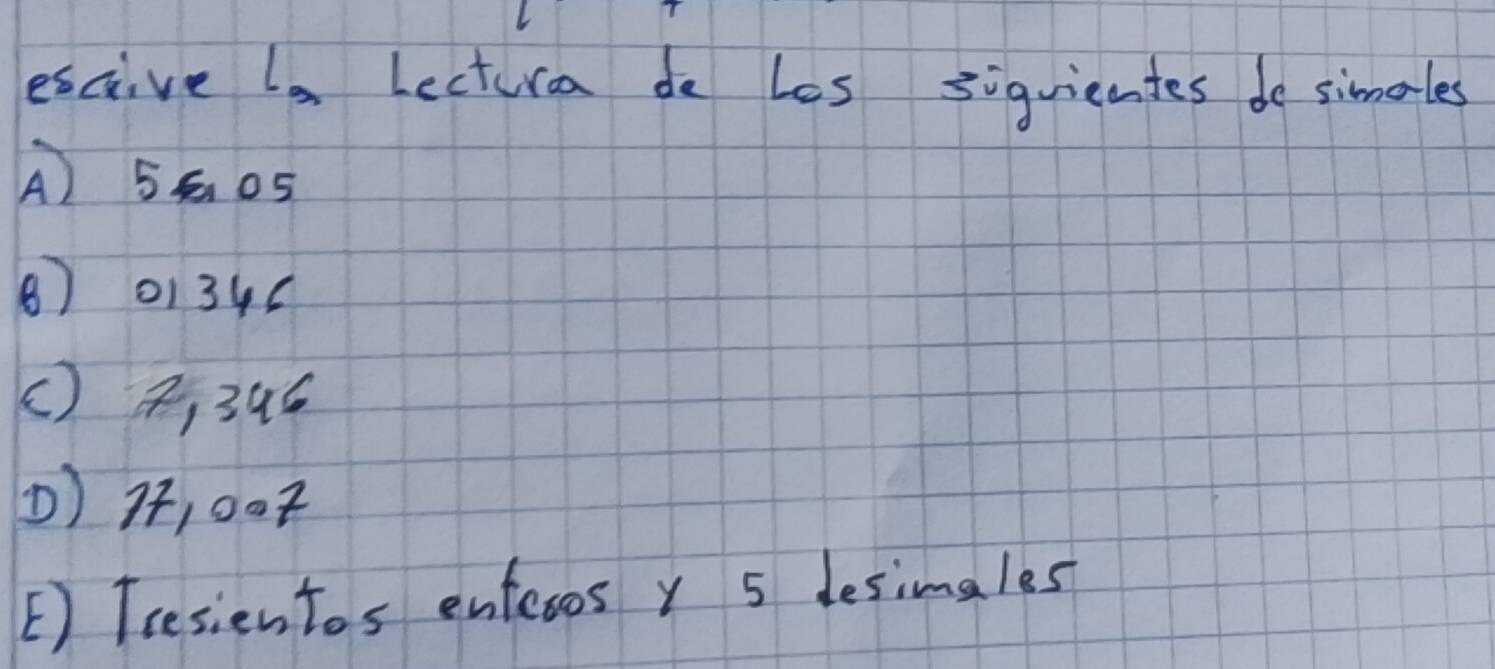 escrive la Lectura de Los siguientes de simales
A) 5 05
B) 0,346
C) 7,346
D) 17,007
E) Tresientos enteros y 5 desimales